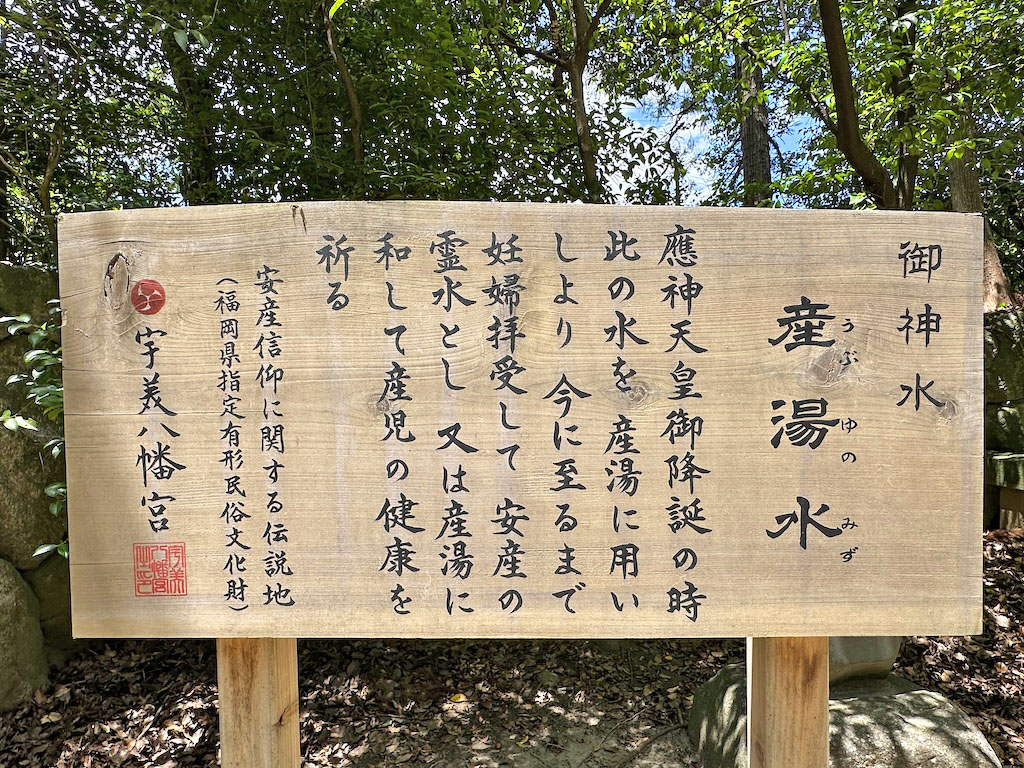 御神水
産湯水
うぶゆのみず
應神天皇御降誕の時
此の水を産湯に用い
しより 今に至るまで
妊婦拝受して 安産の
霊水とし 又は産湯に
和して産児の健康を
祈る
安産信仰に関する伝説地
(福岡県指定有形民俗文化財)
宇美八幡宮
宇美八幡宮之印